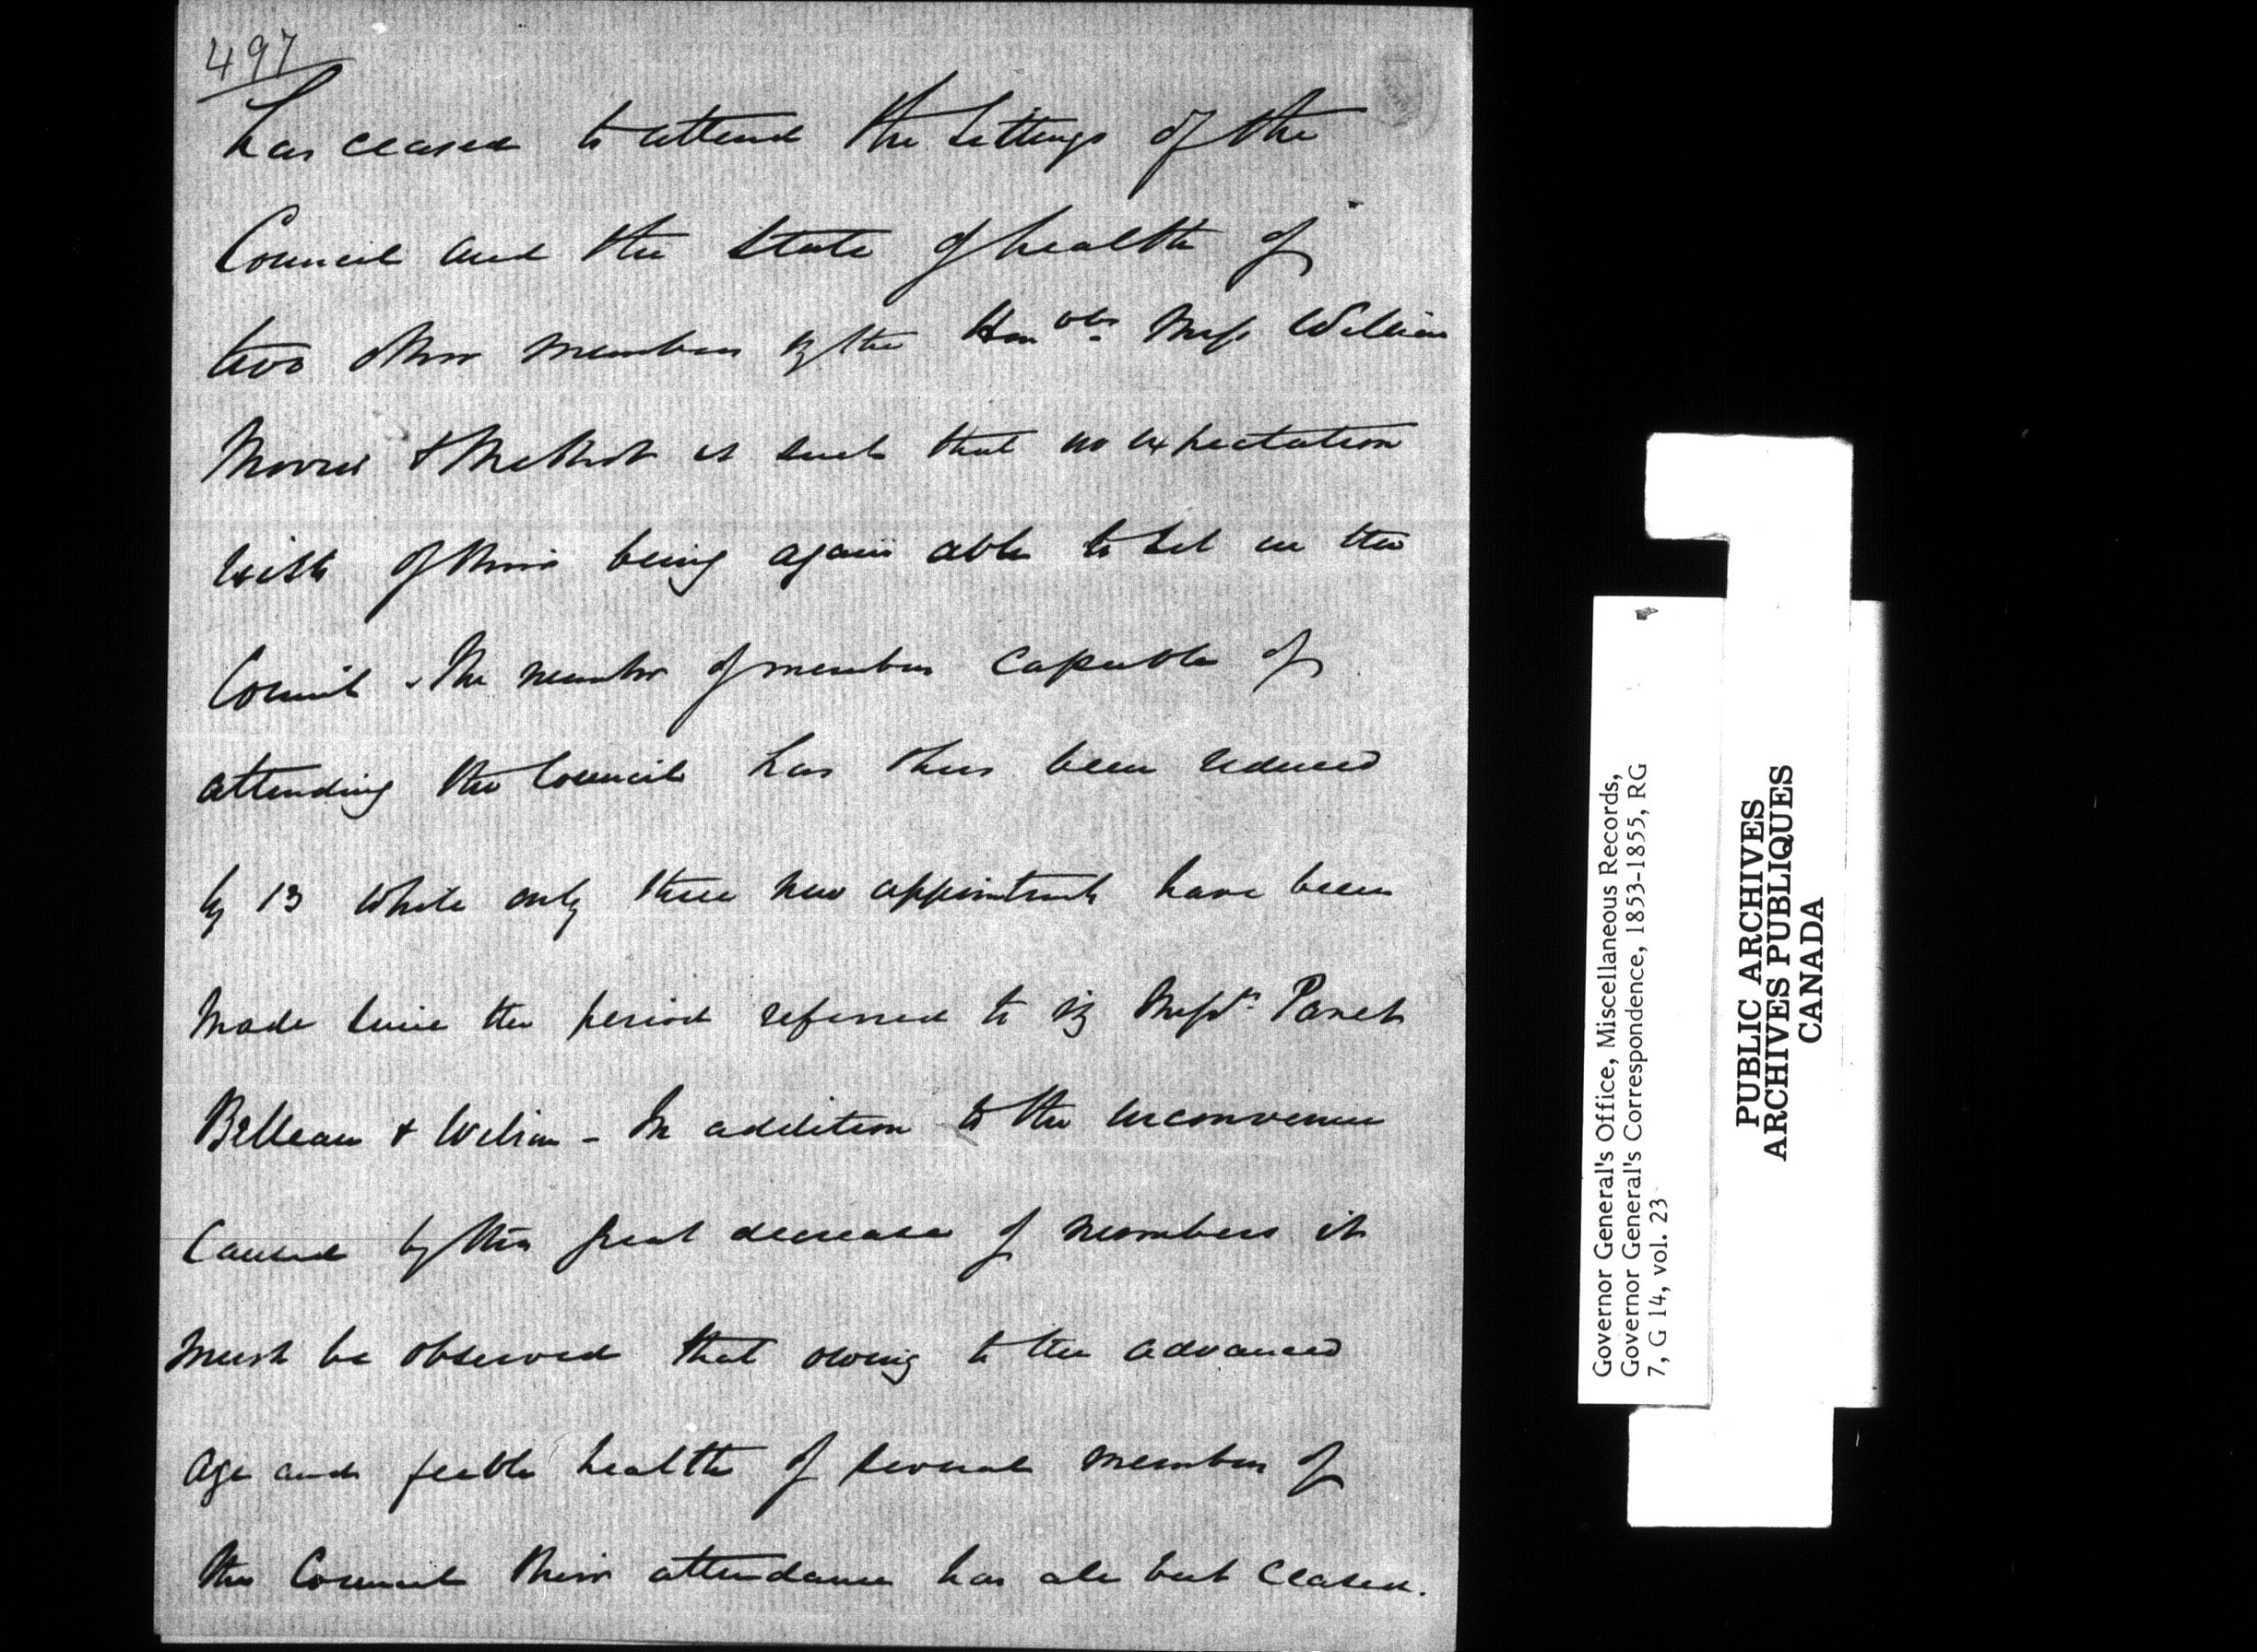 497
has ceased to attend the Sittings of the
Council and the state of health of
two other members viz the Honbls Messrs William
Morris & Methot is such that no expectation
exists of their being again able to sit in the
Council. The number of members capable of
attending the Council has thus been reduced
by 13 while only three new appointments have been
made since the period referred to viz Messrs Panet
Belleau & Wilson - In addition to the inconvenience
caused by this great decrease of members it
must be observed that owing to the advanced
age and feeble health of several members of
the Council their attendance has all but ceased.
Governor General's Office, Miscellaneous Records,
Governor General's Correspondence, 1853-1855, RG
7, G 14, vol. 23
PUBLIC ARCHIVES
ARCHIVES PUBLIQUES
CANADA